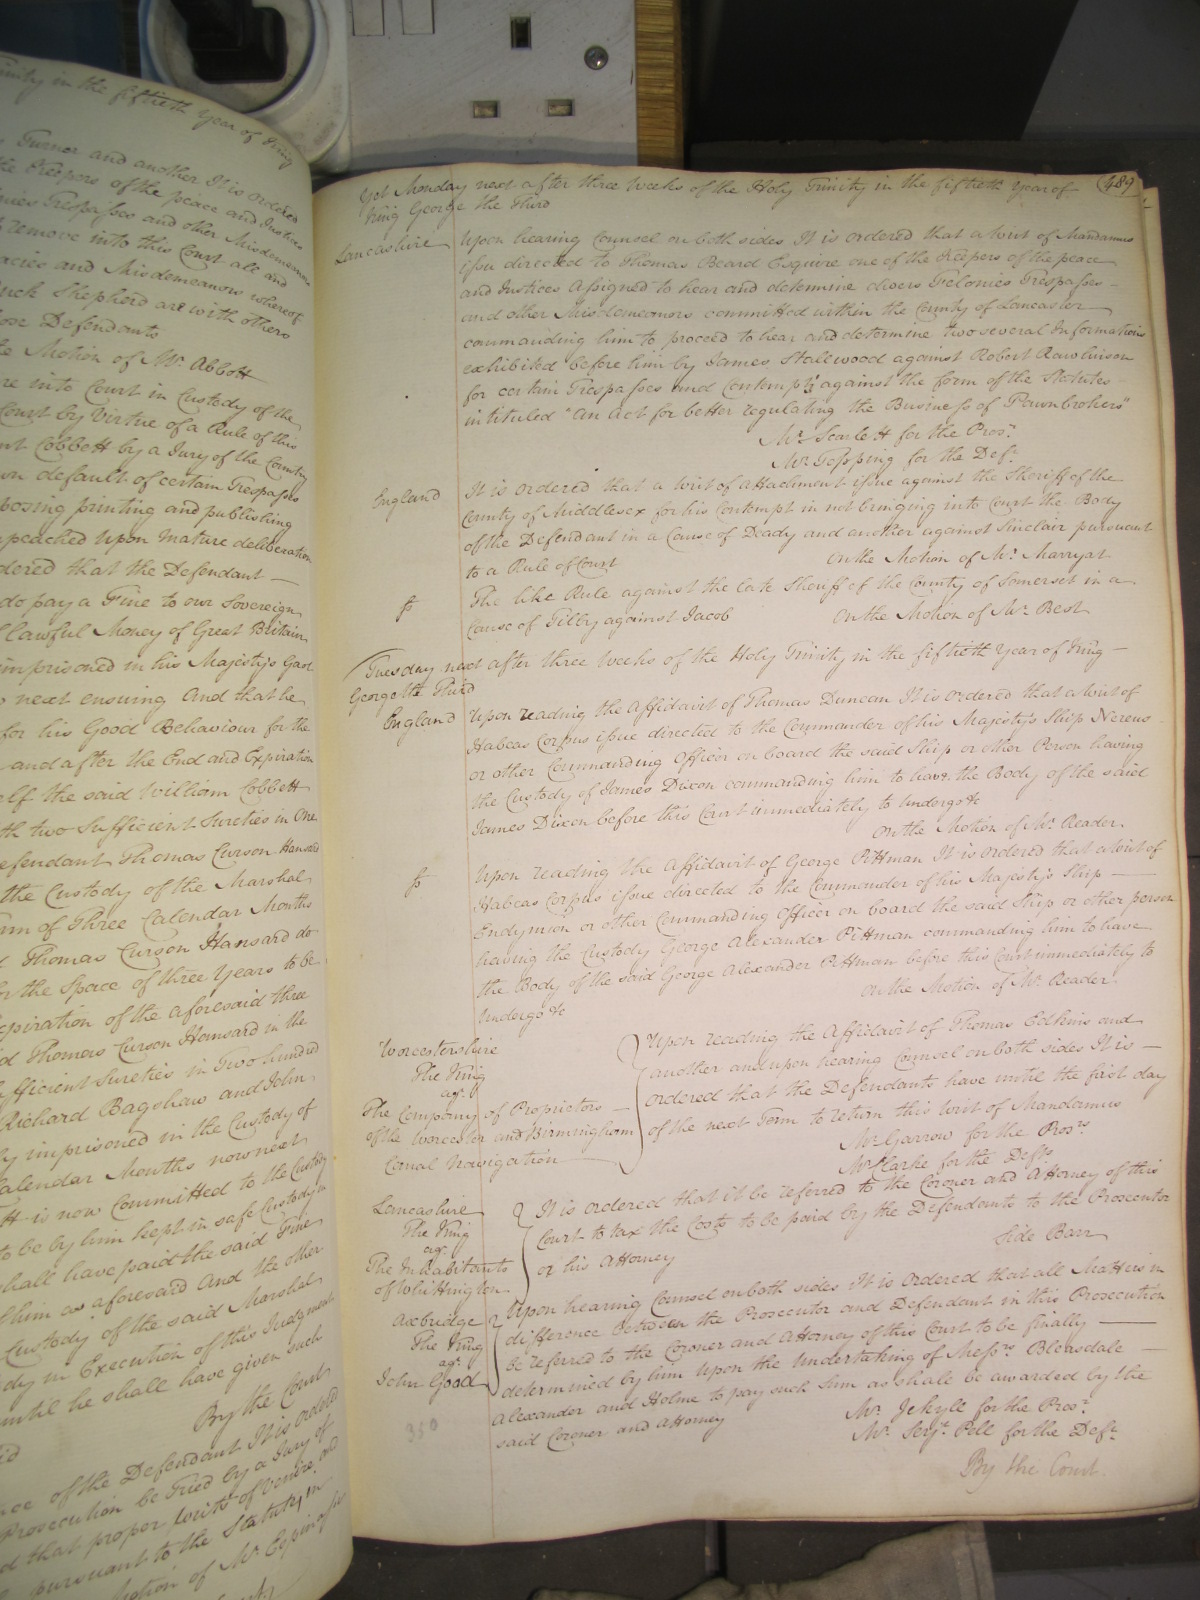 Trinity in the fiftieth Year of King
Turner and another It is ordered
the Keepers of the peace and Justices
Trespasses and other Misdemeanors
remove into this Court all and
and Misdemeanors whereof
Shepherd are with others
Defendants
Motion of Mr. Abbott
into Court in Custody of the
Court by Virtue of a Rule of this
Cobbett by a Jury of the County
default of certain Trespasses
printing and publishing
upon mature deliberation
ordered that the Defendant —
do pay a Fine to our Sovereign
lawful Money of Great Britain
imprisoned in his Majesty's Gaol
next ensuing and that he
for his Good Behaviour for the
and after the End and Expiration
the said William Cobbett
two Sufficient Sureties in One
Defendant Thomas Curson Hansard
the Custody of the Marshal
of Three Calendar Months
Thomas Curson Hansard do
for the Space of three Years to be
expiration of the aforesaid three
Thomas Curson Hansard in the
Sufficient Sureties in Two hundred
Richard Bagshaw and John
imprisoned in the Custody of
Calendar Months now next
is now Committed to the Custody
to be by him kept in safe Custody in
shall have paid the said Fine
him as aforesaid and the other
Custody of the said Marshal
in Execution of this Judgment
until he shall have given such
By the Court
of the Defendant It is ordered
Prosecution be Tried by a Jury of
that proper Writs of Venire and
pursuant to the Statute in
Motion of Mr. Espinasse
489
Yet Monday next after three weeks of the Holy Trinity in the fiftieth Year of
King George the Third
Lancashire Upon hearing Counsel on both sides It is ordered that a Writ of Mandamus
issue directed to Thomas Beard Esquire one of the Keepers of the peace
and Justices Assigned to hear and determine divers Felonies Trespasses –
and other Misdemeanors committed within the County of Lancaster
commanding him to proceed to hear and determine two several Informations
exhibited before him by James Stallwood against Robert Rawlinson
for certain Trespasses and Contempts against the form of the Statutes –
intituled "An Act for better regulating the Business of Pawnbrokers"
Mr. Scarlett for the Prosr.
Mr. Topping for the Deft.
England It is ordered that a Writ of Attachment issue against the Sheriff of the
County of Middlesex for his Contempt in not bringing into Court the Body
of the Defendant in a Cause of Deady and another against Sinclair pursuant
to a Rule of Court On the Motion of Mr. Marryat
The like Rule against the late Sheriff of the County of Somerset in a
Cause of Tilby against Jacob On the Motion of Mr. Best
Tuesday next after three weeks of the Holy Trinity in the fiftieth Year of King –
George the Third
England Upon reading the Affidavit of Thomas Duncan It is ordered that a Writ of
Habeas Corpus issue directed to the Commander of his Majesty's Ship Nereus
or other Commanding Officer on board the said Ship or other Person having
the Custody of James Dixon commanding him to have the Body of the said
James Dixon before this Court immediately to undergo &c
On the Motion of Mr. Reader
Upon reading the Affidavit of George Pittman It is ordered that a Writ of
Habeas Corpus issue directed to the Commander of his Majesty's Ship —
Endymion or other Commanding Officer on board the said Ship or other person
having the Custody George Alexander Pittman commanding him to have
the Body of the said George Alexander Pittman before this Court immediately to
Undergo &c On the Motion of Mr. Reader
Worcestershire
The King
agt.
The Company of Proprietors –
of the Worcester and Birmingham
Canal Navigation
Upon reading the Affidavit of Thomas Edkins and
another and upon hearing Counsel on both sides It is —
ordered that the Defendants have until the first day
of the next Term to return this Writ of Mandamus
Mr. Garrow for the Prosrs.
Mr. Clarke for the Defts.
Lancashire
The King
agt.
The Inhabitants
of Whittington
It is ordered that it be referred to the Coroner and Attorney of this
Court to tax the Costs to be paid by the Defendants to the Prosecutor
or his Attorney Side Barr
Axbridge
The King
agt.
John Good
Upon hearing Counsel on both sides It is ordered that all Matters in
difference between the Prosecutor and Defendant in this Prosecution
be referred to the Coroner and Attorney of this Court to be finally —
determined by him Upon the Undertaking of Messrs. Bleasdale —
Alexander and Holme to pay such Sum as shall be awarded by the
said Coroner and Attorney
Mr. Jekyll for the Prosr.
Mr. Serjt. Pell for the Deft.
By the Court.
350